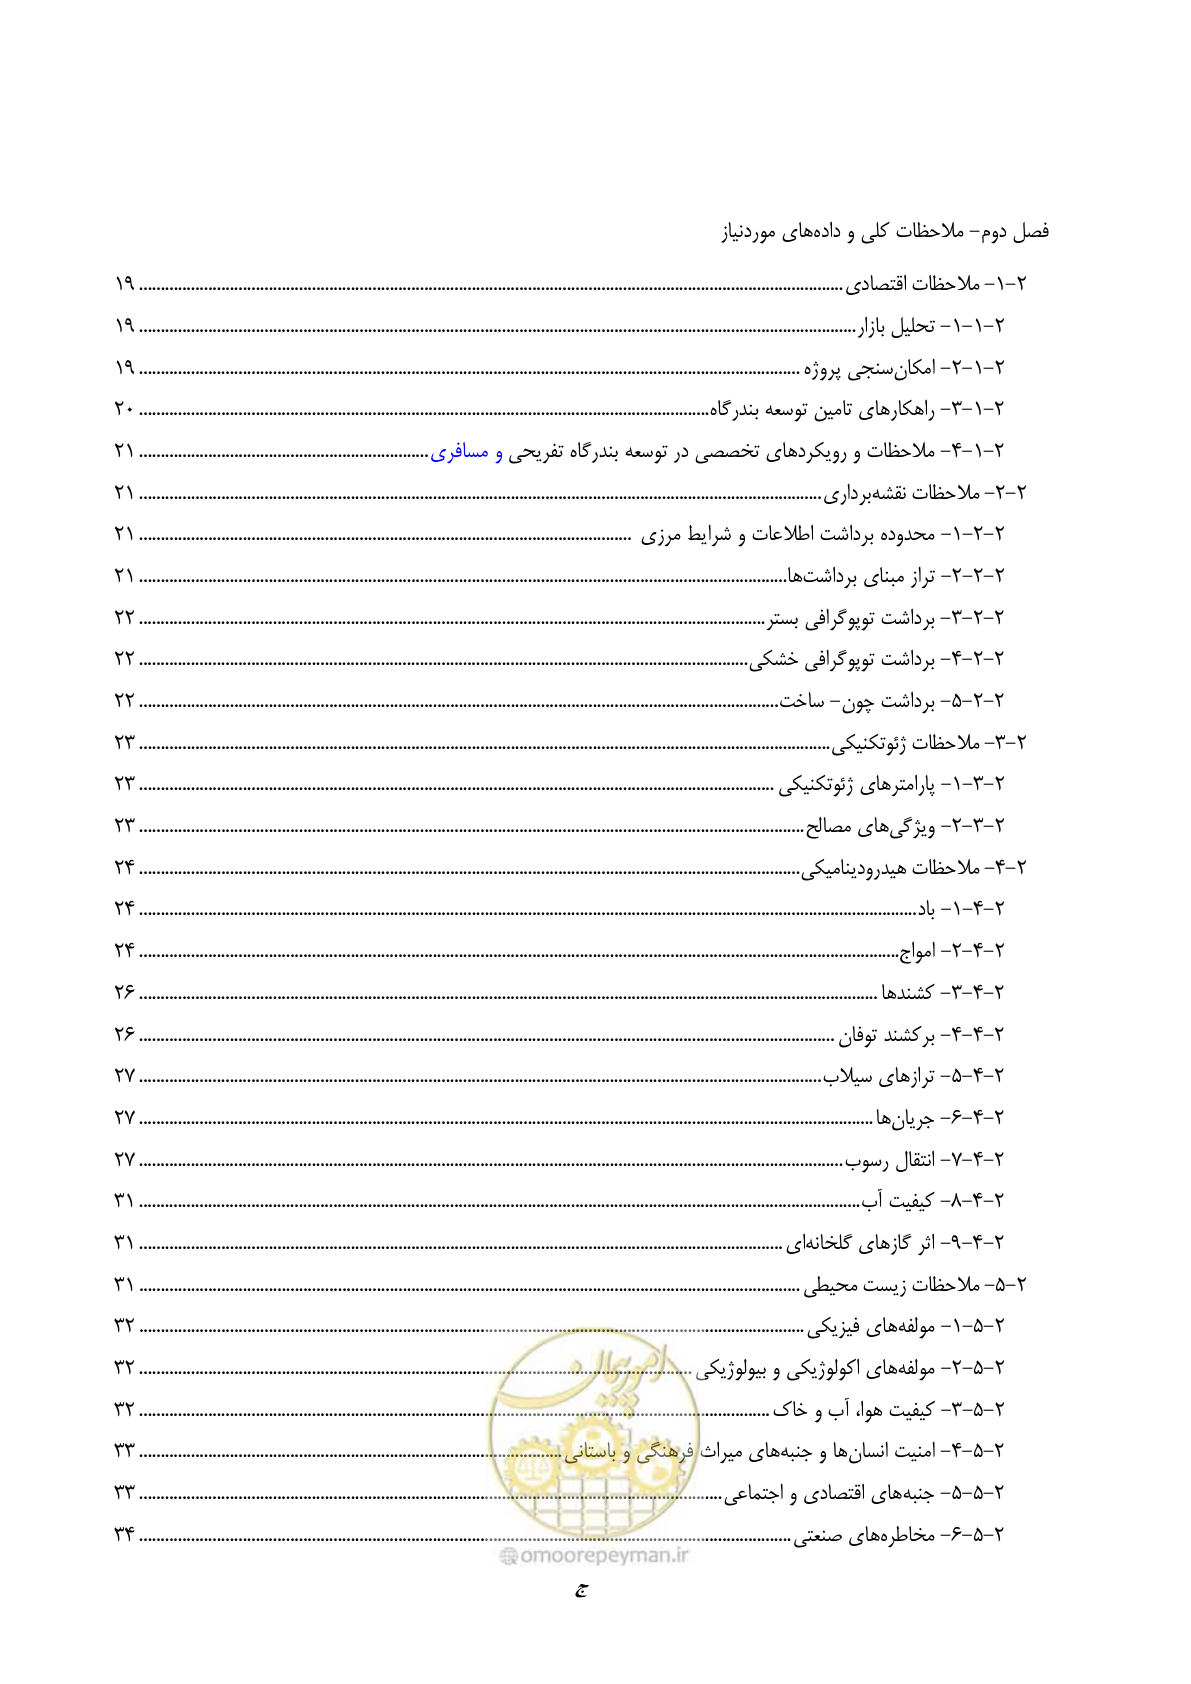 فصل دوم- ملاحظات کلی و داده‌های موردنیاز
۲-۱- ملاحظات اقتصادی ........ ۱۹
۲-۱-۱- تحلیل بازار ........ ۱۹
۲-۱-۲- امکان‌سنجی پروژه ........ ۱۹
۲-۱-۳- راهکارهای تامین توسعه بندرگاه ........ ۲۰
۲-۱-۴- ملاحظات و رویکردهای تخصصی در توسعه بندرگاه تفریحی و مسافری ........ ۲۱
۲-۲- ملاحظات نقشه‌برداری ........ ۲۱
۲-۲-۱- محدوده برداشت اطلاعات و شرایط مرزی ........ ۲۱
۲-۲-۲- تراز مبنای برداشت‌ها ........ ۲۱
۲-۲-۳- برداشت توپوگرافی بستر ........ ۲۲
۲-۲-۴- برداشت توپوگرافی خشکی ........ ۲۲
۲-۲-۵- برداشت چون- ساخت ........ ۲۲
۲-۳- ملاحظات ژئوتکنیکی ........ ۲۳
۲-۳-۱- پارامترهای ژئوتکنیکی ........ ۲۳
۲-۳-۲- ویژگی‌های مصالح ........ ۲۳
۲-۴- ملاحظات هیدرودینامیکی ........ ۲۴
۲-۴-۱- باد ........ ۲۴
۲-۴-۲- امواج ........ ۲۴
۲-۴-۳- کشندها ........ ۲۶
۲-۴-۴- برکشند توفان ........ ۲۶
۲-۴-۵- ترازهای سیلاب ........ ۲۷
۲-۴-۶- جریان‌ها ........ ۲۷
۲-۴-۷- انتقال رسوب ........ ۲۷
۲-۴-۸- کیفیت آب ........ ۳۱
۲-۴-۹- اثر گازهای گلخانه‌ای ........ ۳۱
۲-۵- ملاحظات زیست محیطی ........ ۳۱
۲-۵-۱- مولفه‌های فیزیکی ........ ۳۲
۲-۵-۲- مولفه‌های اکولوژیکی و بیولوژیکی ........ ۳۲
۲-۵-۳- کیفیت هوا، آب و خاک ........ ۳۲
۲-۵-۴- امنیت انسان‌ها و جنبه‌های میراث فرهنگی و باستانی ........ ۳۳
۲-۵-۵- جنبه‌های اقتصادی و اجتماعی ........ ۳۳
۲-۵-۶- مخاطره‌های صنعتی ........ ۳۴
امور پیمان
@omoorepeyman.ir
ج